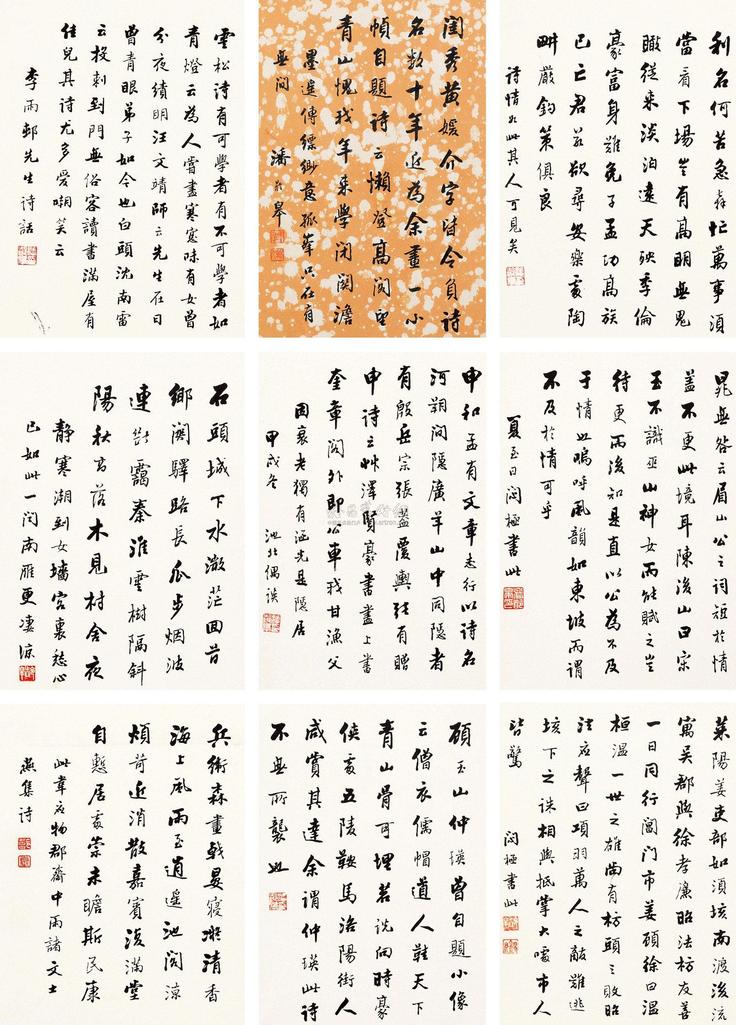 利名何苦急奔忙萬事須
當看下場豈有高明無鬼
瞰從來淡泊遠天殃季倫
豪富身難免子孟功高族
已亡君若欲尋安樂處陶
畊嚴釣策俱良
詩情如此其人可見矣
閨秀黃媛介字皆令負詩
名數十年近為余畫一小
幀自題詩云懶登高閣望
青山愧我年來學閉關澹
墨遙傳縹緲意孤峯只在有
無間
潘皋
雪松詩有可學者有不可學者如
青燈云為人嘗盡寒窗味有女曾
分夜績明汪文靖師云先生在日
曾青眼弟子如今也白頭沈南雷
云投刺到門無俗客讀書滿屋有
佳兒其詩尤多愛嘲笑云
李雨邨先生詩話
晁無咎云眉山公之詞短於情
蓋不更此境耳陳後山曰宋
玉不識巫山神女而能賦之豈
待更而後知是直以公為不及
于情也嗚呼風韻如東坡而謂
不及於情可乎
夏至日閬極書此
申和孟有文章志行以詩名
河朔間隱廣羊山中同隱者
有殷岳宗張蓋覆輿有贈
申詩云澤賢豪書盡上書
奎章閣外即公車我甘漁父
因衰老獨有涵光是隱居
甲戌冬 池北偶談
石頭城下水茫回首
鄉關驛路長瓜步烟波
連靄秦淮雲樹隔斜
陽秋高落木見村舍夜
靜寒潮到女墻宮裏愁心
已如此一聞南雁更淒涼
萊陽姜吏部如須垓南渡後流
寓吳郡與徐孝廉昭法枋友善
一日同行閶門市姜顧徐曰
桓溫一世之雄尚有枋頭之敗昭
法應聲曰項羽萬人之敵難逃
垓下之誅相與抵掌大噱市人
皆驚
閬極書此
顧玉山仲瑛曾自題小像
云僧衣儒帽道人鞋天下
青山骨可埋若說向時豪
俠處五陵鞍馬洛陽街人
咸賞其達余謂仲瑛此詩
不無所襲也
兵衛森畫戟晏寢凝清香
海上風雨至逍遙池閣涼
煩苛近消散嘉賓復滿堂
自慙居處崇未瞻斯民康
此韋應物郡齋中雨諸文士
燕集詩